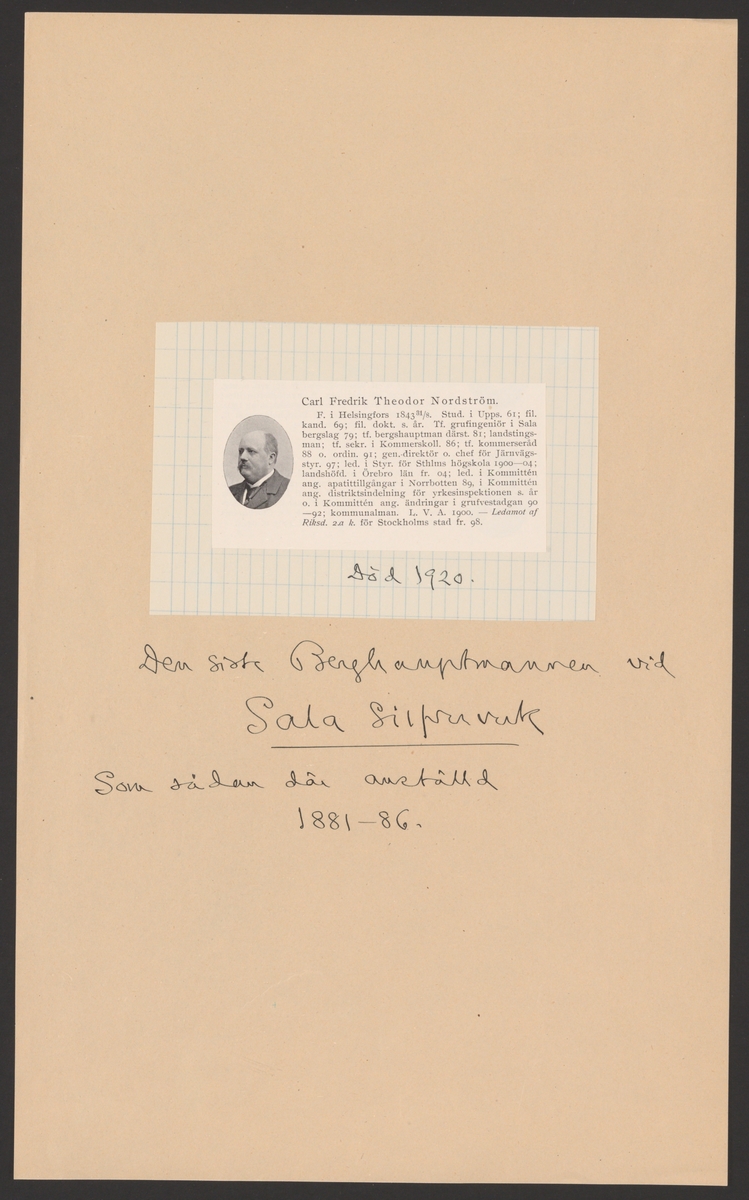 Carl Fredrik Theodor Nordström.
F. i Helsingfors 1843 31/8. Stud. i Upps. 61; fil.
kand. 69; fil. dokt. s. år. Tf. grufingeniör i Sala
bergslag 79; tf. bergshauptman därst. 81; landstings-
man; tf. sekr. i Kommerskoll. 86; tf. kommerseråd
88 o. ordin. 91; gen.-direktör o. chef för Järnvägs-
styr. 97; led. i Styr. för Sthlms högskola 1900—04;
landshöfd. i Örebro län fr. 04; led. i Kommittén
ang. apatittillgångar i Norrbotten 89, i Kommittén
ang. distriktsindelning för yrkesinspektionen s. år
o. i Kommittén ang. ändringar i grufvestadgan 90
—92; kommunalman. L. V. A. 1900. — Ledamot af
Riksd. 2.a k. för Stockholms stad fr. 98.
Död 1920.
Den siste Berghauptmannen vid
Sala Silfververk
Som sådan där anställd
1881—86.